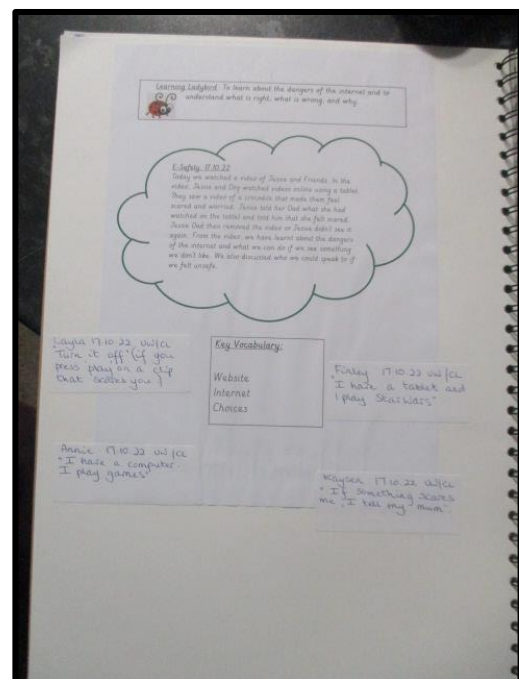 Learning Ladybird: To learn about the dangers of the internet and to
understand what is right, what is wrong, and why.
E-Safety 17.10.22
Today we watched a video of Jessie and Friends. In the
video, Jessie and Dog watched videos online using a tablet.
They saw a video of a crocodile that made them feel
scared and worried. Jessie told her Dad what she had
watched on the tablet and told him that she felt scared.
Jessie Dad then removed the video so Jessie didn't see it
again. From the video, we have learnt about the dangers
of the internet and what we can do if we see something
we don't like. We also discussed who we could speak to if
we felt unsafe.
Key Vocabulary:
Website
Internet
Choices
Layla 17.10.22 UW/CL
"Turn it off" (if you
press play on a clip
that scares you)
Finley 17.10.22 UW/CL
"I have a tablet and
I play StarWars"
Annie 17.10.22 UW/CL
"I have a computer.
I play games"
Kaysen 17.10.22 UW/CL
"If something scares
me, I tell my mum"